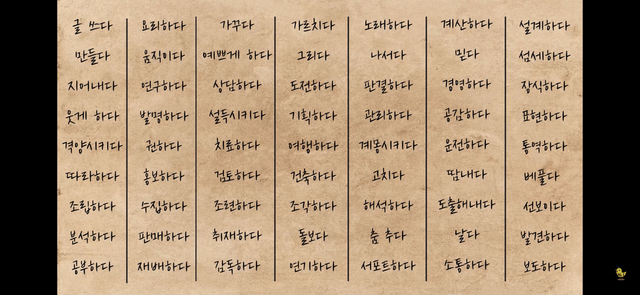 글 쓰다 요리하다 가꾸다 가르치다 노래하다 계산하다 설계하다
만들다 움직이다 예쁘게 하다 그리다 나서다 믿다 섬세하다
지어내다 연구하다 상담하다 도전하다 판결하다 경영하다 장식하다
웃게 하다 발명하다 설득시키다 기획하다 관리하다 공감하다 표현하다
격양시키다 권하다 치료하다 여행하다 계몽시키다 운전하다 통역하다
따라하다 홍보하다 검토하다 건축하다 고치다 땀내다 베풀다
조립하다 수집하다 조련하다 조각하다 해석하다 도출해내다 선보이다
분석하다 판매하다 취재하다 돌보다 춤 추다 날다 발견하다
공부하다 재배하다 감독하다 연기하다 서포트하다 소통하다 보도하다